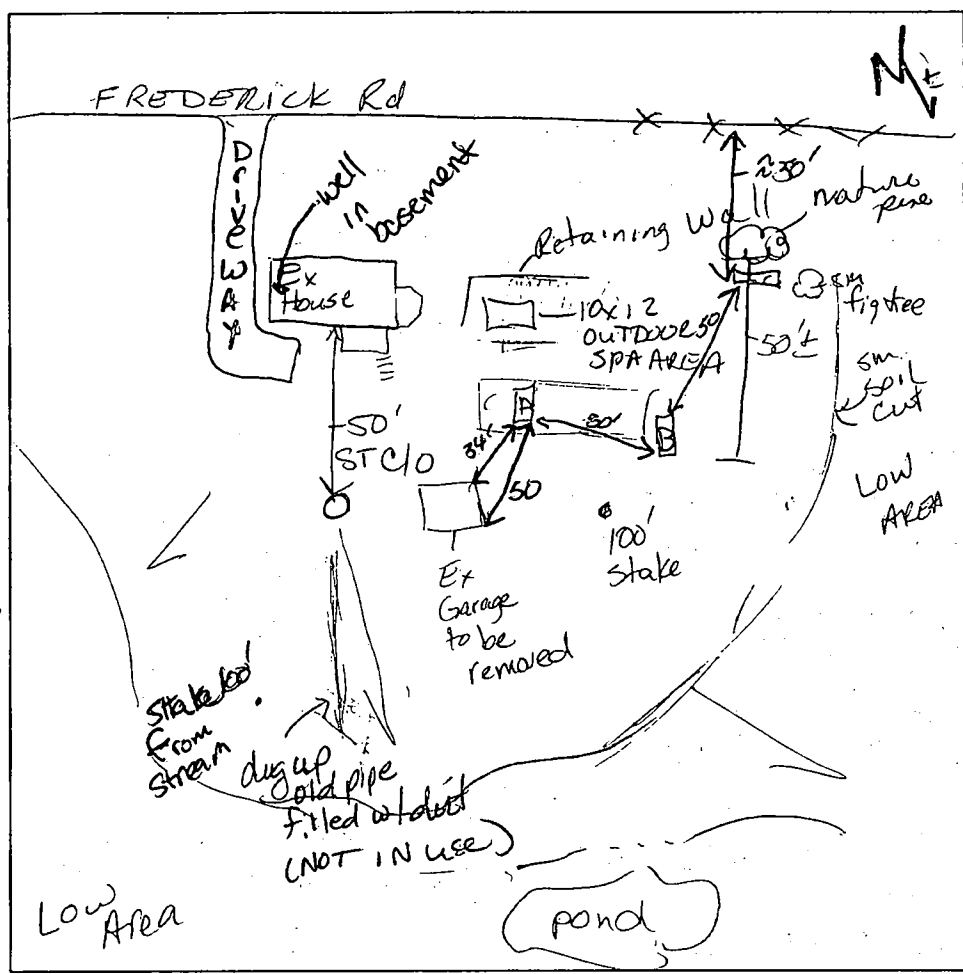 N
FREDERICK Rd
DRIVEWAY
well
in
basement
Ex
House
Retaining Wall
≈30'
nature
10x12
OUTDOOR
SPA AREA
50
sm
fig tree
50'±
sm
soil
cut
LOW
AREA
50'
ST C/O
C
A
B
34'
50
50'
100'
Stake
Ex
Garage
to be
removed
Stake 100'
from
stream
dug up
old pipe
filled w/dirt
(NOT IN USE)
Low
Area
pond